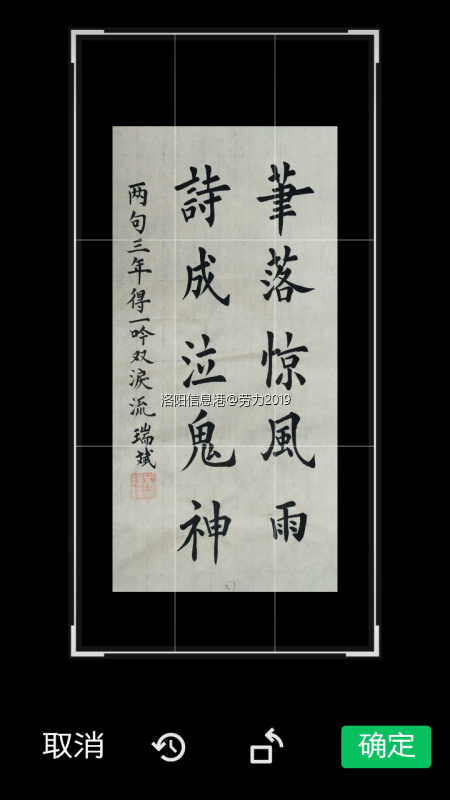 筆落惊風雨
詩成泣鬼神
两句三年得一吟双淚流瑞斌
洛阳信息港@劳力2019
取消
确定